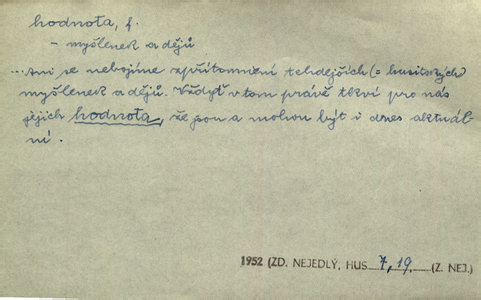 hodnota, f.
– myšlenek a dějů
...Ani se nebojíme zpřítomnění tehdejších (= husitských)
myšlenek a dějů. Vždyť v tom právě tkví pro nás
jejich hodnota, že jsou a mohou být i dnes aktuál-
ní.
1952 (ZD. NEJEDLÝ, HUS 7, 19 (Z. NEJ.)